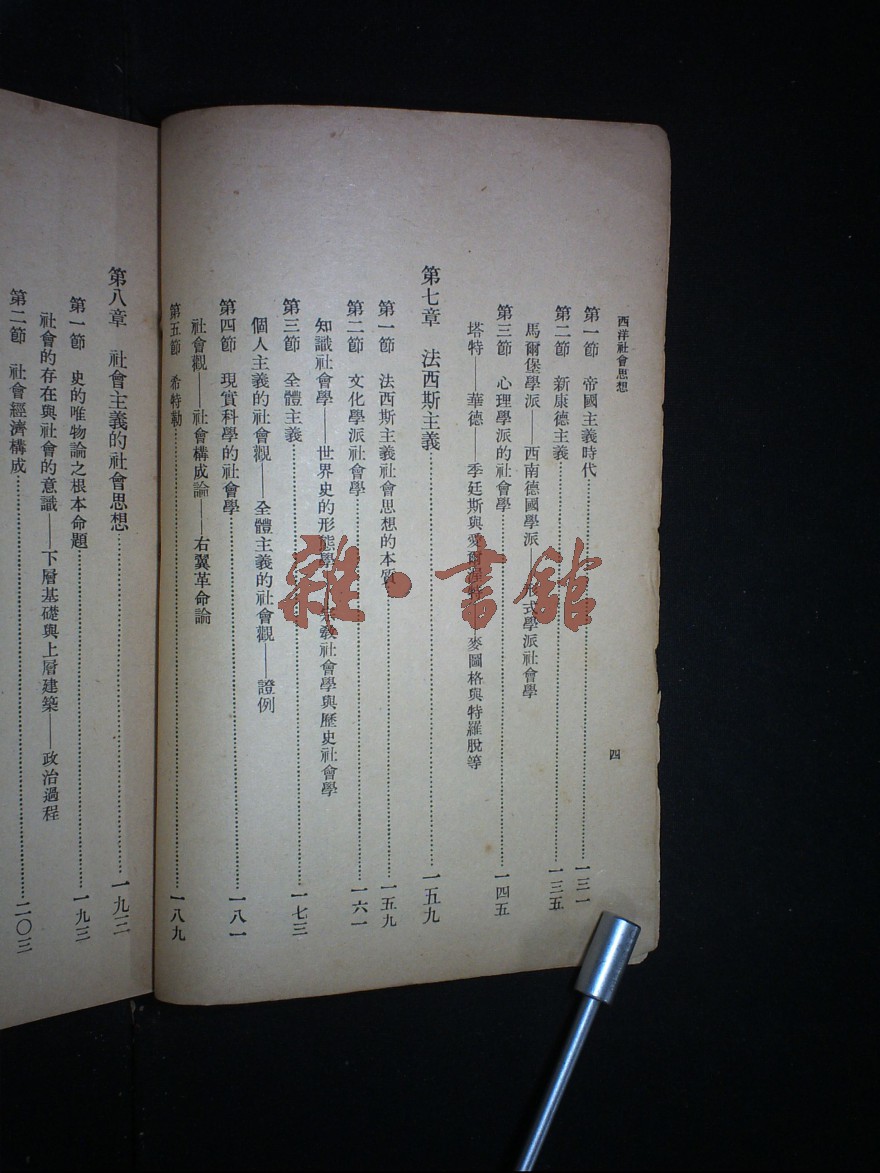 西洋社會思想
四
第一節 帝國主義時代……一三一
第二節 新康德主義……一三五
馬爾堡學派——西南德國學派——形式學派社會學
第三節 心理學派的社會學……一四五
塔特——華德——季廷斯與愛爾 麥圖格與特羅脫等
第七章 法西斯主義……一五九
第一節 法西斯主義社會思想的本質……一五九
第二節 文化學派社會學……一六一
知識社會學——世界史的形態學 宗教社會學與歷史社會學
第三節 全體主義……一七三
個人主義的社會觀——全體主義的社會觀——證例
第四節 現實科學的社會學……一八一
社會觀——社會構成論——右翼革命論
第五節 希特勒……一八九
第八章 社會主義的社會思想……一九三
第一節 史的唯物論之根本命題……一九三
社會的存在與社會的意識——下層基礎與上層建築——政治過程
第二節 社會經濟構成……二〇三
雜·書館